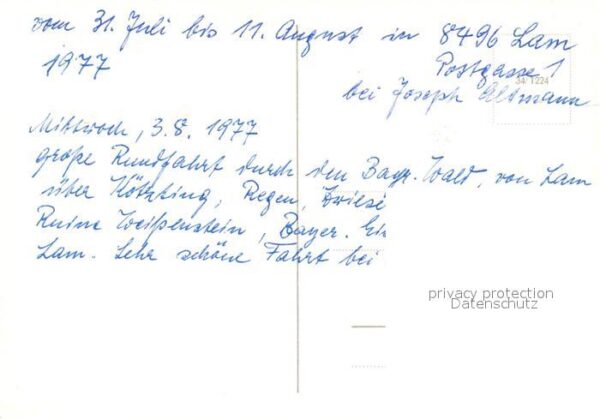 vom 31. Juli bis 11. August in 8496 Lam
1977 Postgasse 1
34/1224
bei Joseph Altmann
Mittwoch, 3.8. 1977
große Rundfahrt durch den Bayr. Wald, von Lam
über Kötzting, Regen,
Ruine Weißenstein, Bayer.
Lam. Sehr schöne Fahrt bei
privacy protection
Datenschutz